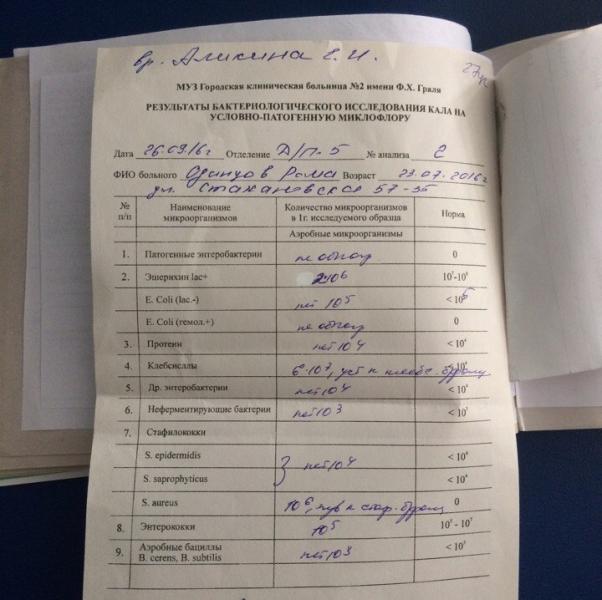 вр. Аликина Е.И.
МУЗ Городская клиническая больница №2 имени Ф.Х. Граля
РЕЗУЛЬТАТЫ БАКТЕРИОЛОГИЧЕСКОГО ИССЛЕДОВАНИЯ КАЛА НА
УСЛОВНО-ПАТОГЕННУЮ МИКЛОФЛОРУ
Дата 26.09.16г Отделение Д/П-5 № анализа 2
ФИО больного Одинцов Рома Возраст 23.07.2016г
ул. Стахановская 57-
№ п/п Наименование микроорганизмов Количество микроорганизмов в 1г. исследуемого образца Норма
Аэробные микроорганизмы
1. Патогенные энтеробактерии не обнар 0
2. Эшерихии lac+ 10⁶ 10⁷-10⁸
E. Coli (lac.-) нет 10⁵ < 10⁵
E. Coli (гемол.+) не обнар 0
3. Протеи нет 10⁴ < 10⁴
4. Клебсиеллы 6·10⁷, уст к клебс. < 10⁴
5. Др. энтеробактерии нет 10⁴ < 10⁴
6. Неферментирующие бактерии нет 10³ < 10³
7. Стафилококки
S. epidermidis нет 10⁴ < 10⁴
S. saprophyticus < 10⁴
S. aureus 10⁶, чув к стаф. 0
8. Энтерококки 10⁵ 10⁵ - 10⁷
9. Аэробные бациллы нет 10³ < 10³
B. cerens, B. subtilis